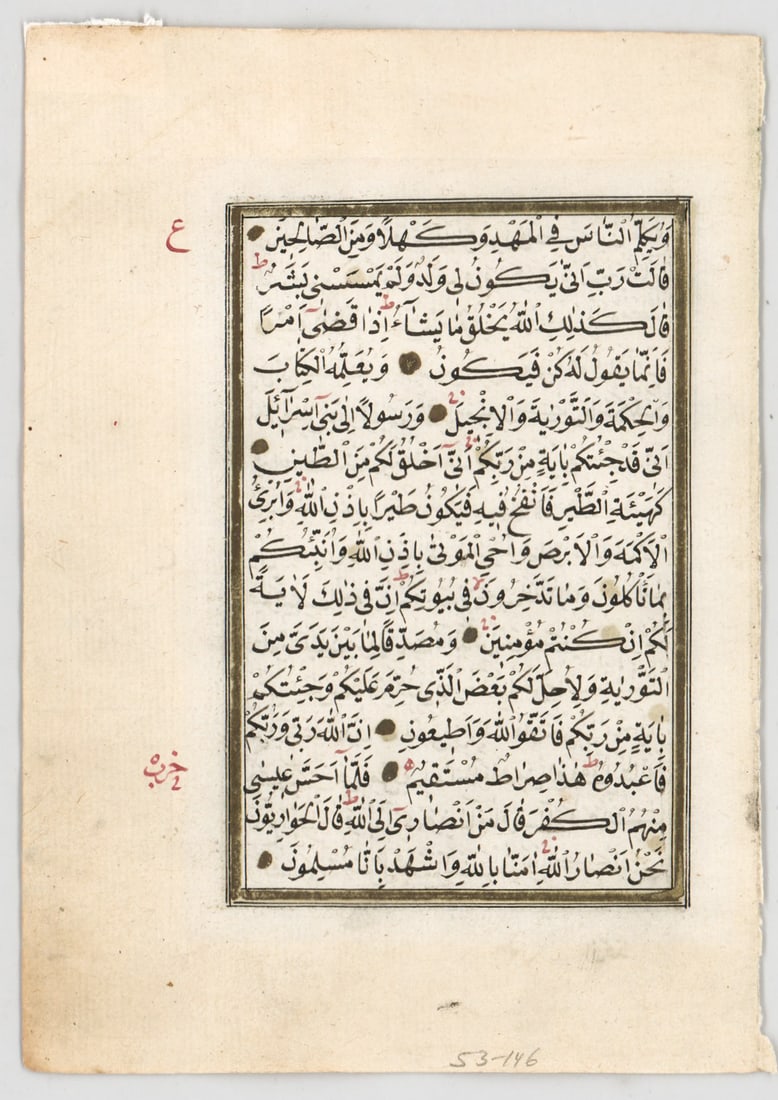 وَيُكَلِّمُ النَّاسَ فِي الْمَهْدِ وَكَهْلًا وَمِنَ الصَّالِحِينَ
ع
قَالَتْ رَبِّ اَنّٰى يَكُونُ لِى وَلَدٌ وَلَمْ يَمْسَسْنِى بَشَرٌ ط
قَالَ كَذٰلِكِ اللّٰهُ يَخْلُقُ مَا يَشَٓاءُ ط اِذَا قَضٰٓى اَمْرًا
فَاِنَّمَا يَقُولُ لَهُ كُنْ فَيَكُونُ وَيُعَلِّمُهُ الْكِتَابَ
وَالْحِكْمَةَ وَالتَّوْرٰيةَ وَالْاِنْجِيلَ وَرَسُولًا اِلٰى بَنِٓى اِسْرَٓائِلَ
اَنِّى قَدْ جِئْتُكُمْ بِاٰيَةٍ مِنْ رَبِّكُمْ اَنِّٓى اَخْلُقُ لَكُمْ مِنَ الطِّينِ
كَهَيْئَةِ الطَّيْرِ فَاَنْفُخُ فِيهِ فَيَكُونُ طَيْرًا بِاِذْنِ اللّٰهِ وَاُبْرِئُ
الْاَكْمَهَ وَالْاَبْرَصَ وَاُحْيِ الْمَوْتٰى بِاِذْنِ اللّٰهِ وَاُنَبِّئُكُمْ
بِمَا تَأْكُلُونَ وَمَا تَدَّخِرُونَ لا فِى بُيُوتِكُمْ ط اِنَّ فِى ذٰلِكَ لَاٰيَةً
لَكُمْ اِنْ كُنْتُمْ مُؤْمِنِينَ وَمُصَدِّقًا لِمَا بَيْنَ يَدَىَّ مِنَ
التَّوْرٰيةِ وَلِاُحِلَّ لَكُمْ بَعْضَ الَّذِى حُرِّمَ عَلَيْكُمْ وَجِئْتُكُمْ
بِاٰيَةٍ مِنْ رَبِّكُمْ فَاتَّقُوا اللّٰهَ وَاَطِيعُونِ اِنَّ اللّٰهَ رَبِّى وَرَبُّكُمْ
فَاعْبُدُوهُ ط هٰذَا صِرَاطٌ مُسْتَقِيمٌ فَلَمَّٓا اَحَسَّ عِيسٰى
حزب
مِنْهُمُ الْكُفْرَ قَالَ مَنْ اَنْصَارِٓى اِلَى اللّٰهِ ط قَالَ الْحَوَارِيُّونَ
نَحْنُ اَنْصَارُ اللّٰهِ اٰمَنَّا بِاللّٰهِ وَاشْهَدْ بِاَنَّا مُسْلِمُونَ
53-146